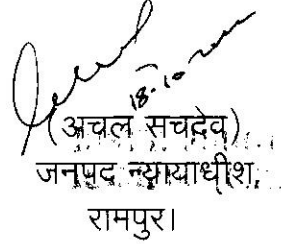 18.10.2000
(अचल सचदेव)
जनपद न्यायाधीश,
रामपुर।